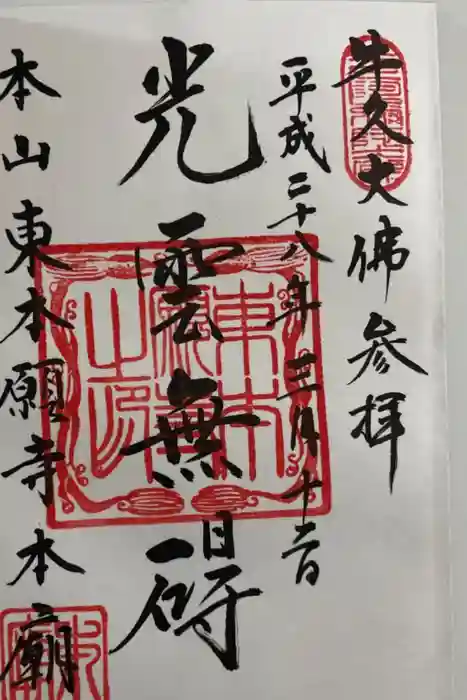 牛久大佛参拝
平成二十八年三月十二日
光雲無碍
本山東本願寺本廟